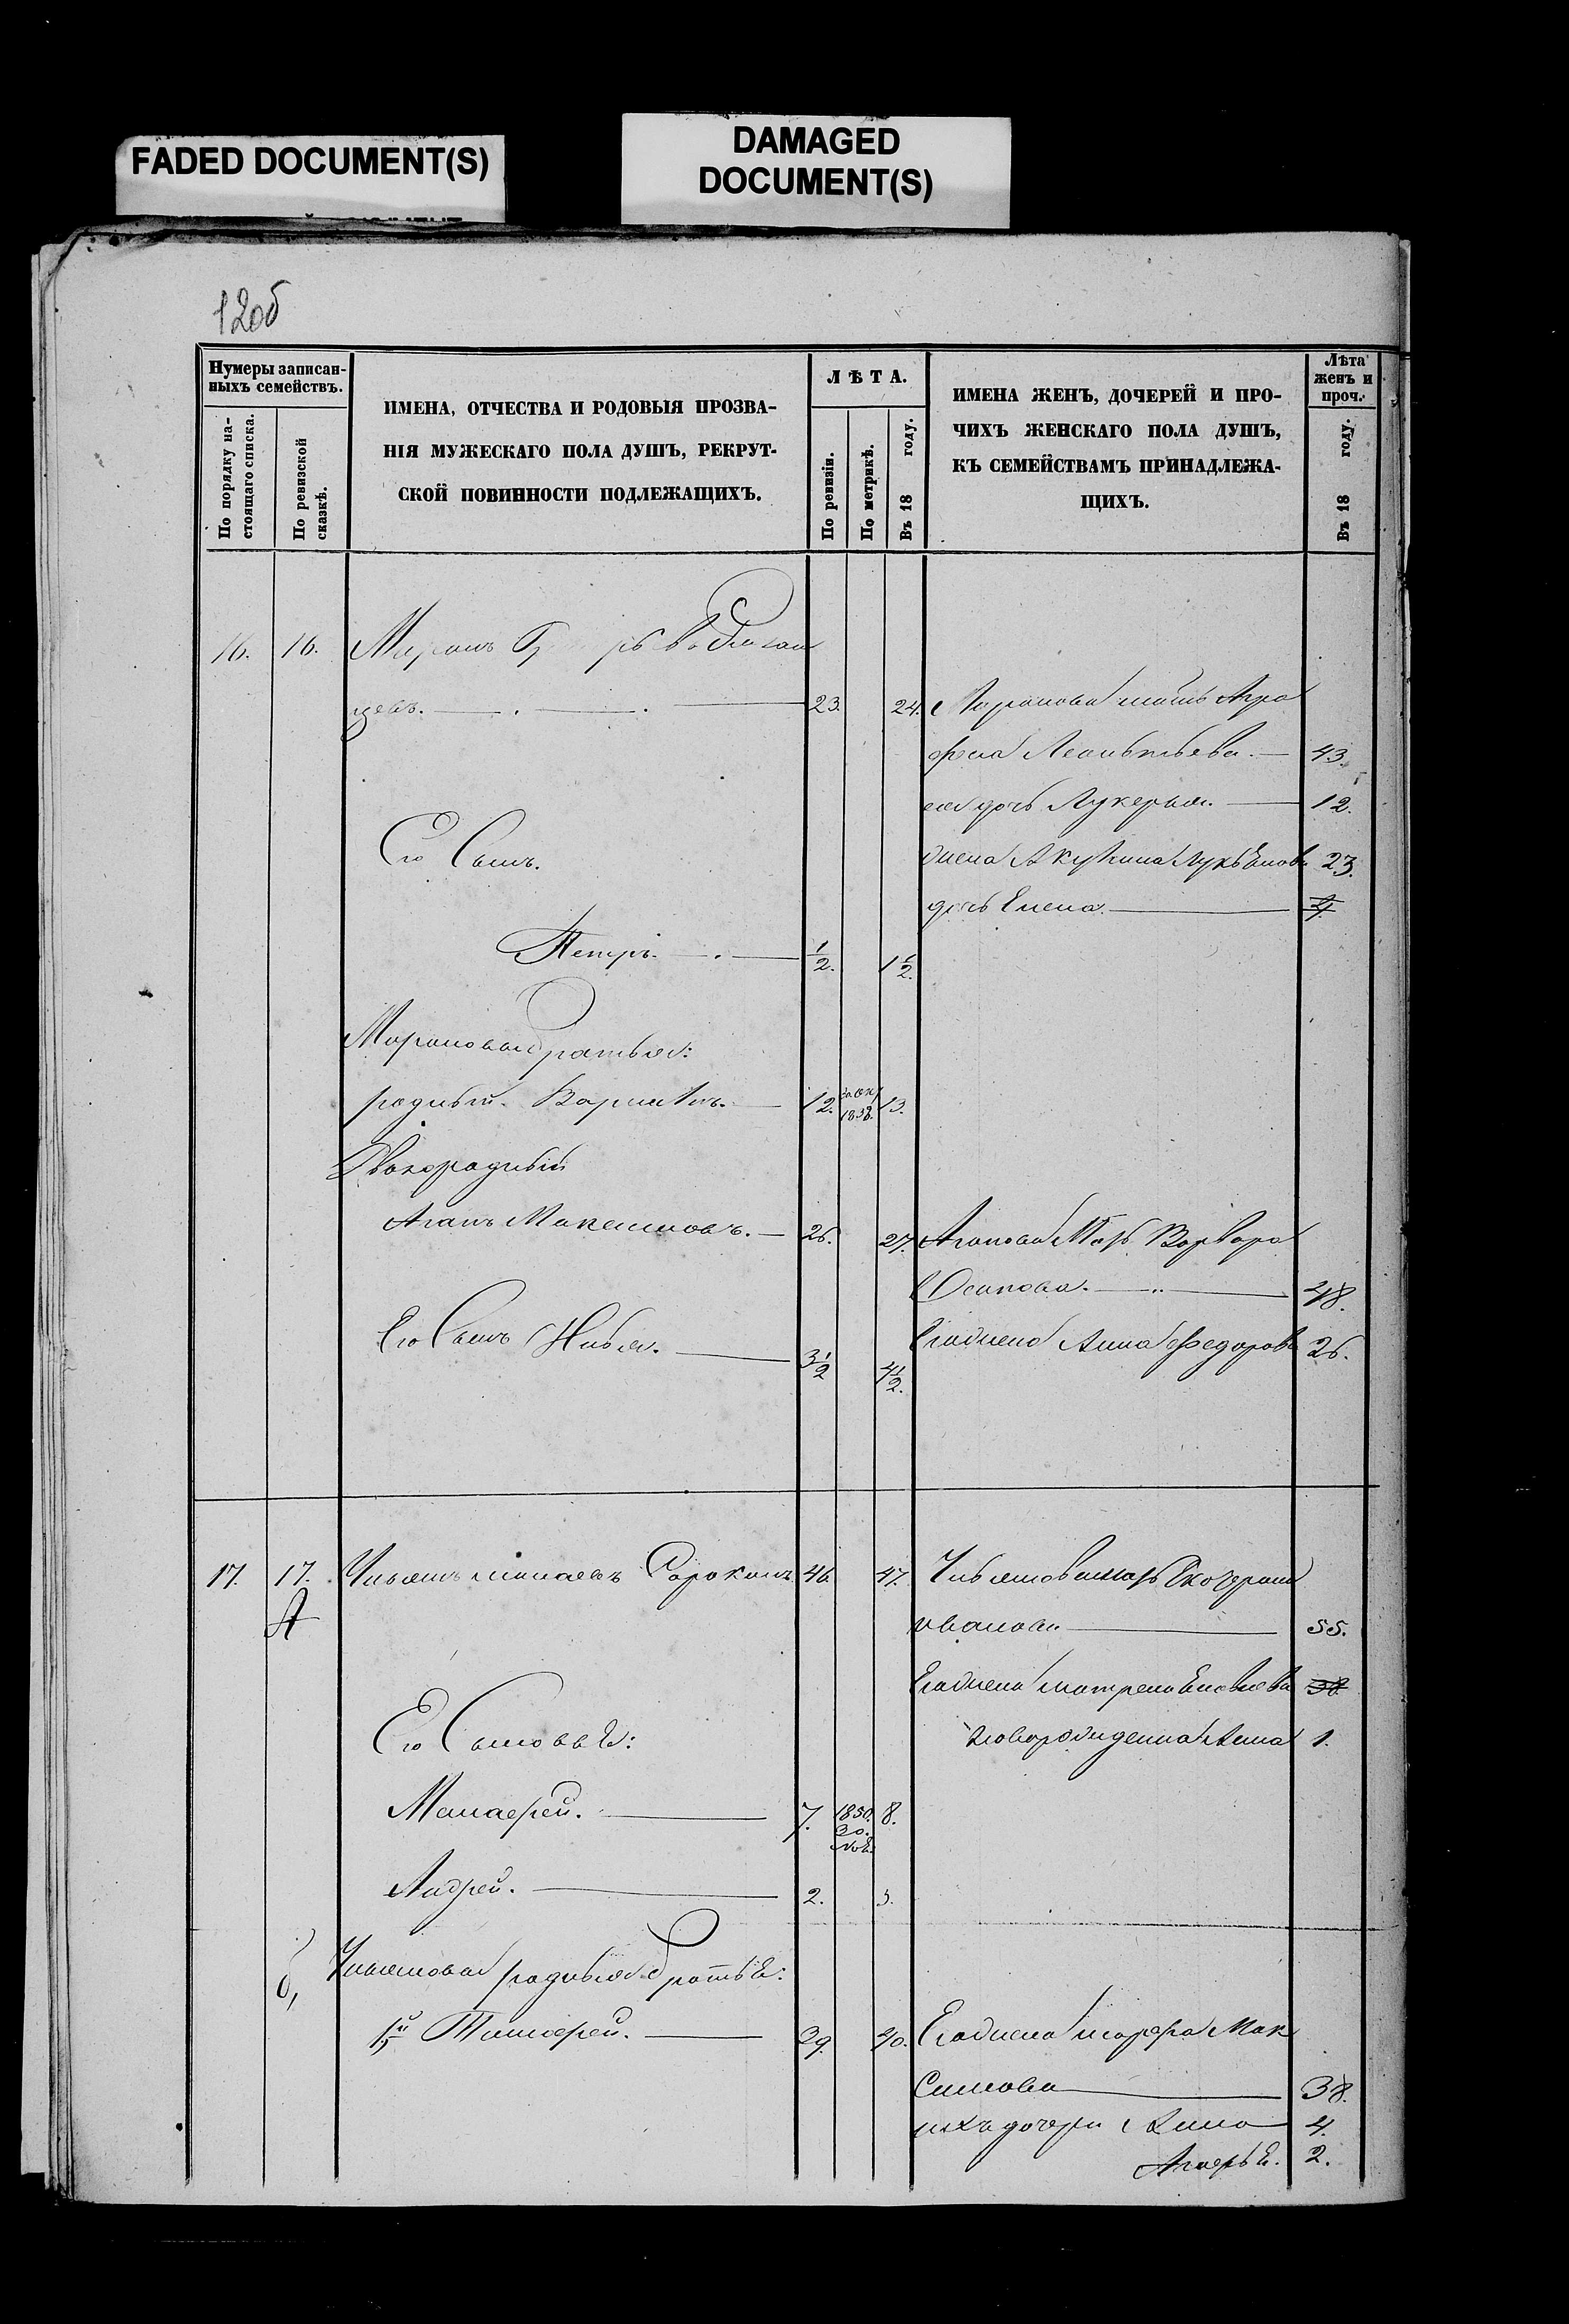 FADED DOCUMENT(S)
DAMAGED
DOCUMENT(S)
12об
Нумеры записан-
ныхъ семействъ.
По порядку на-
стоящаго списка.
По ревизской
сказкѣ.
ИМЕНА, ОТЧЕСТВА И РОДОВЫЯ ПРОЗВА-
НІЯ МУЖЕСКАГО ПОЛА ДУШЪ, РЕКРУТ-
СКОЙ ПОВИННОСТИ ПОДЛЕЖАЩИХЪ.
ЛѢТА.
По ревизіи.
По метрикѣ.
Въ 18 году.
ИМЕНА ЖЕНЪ, ДОЧЕРЕЙ И ПРО-
ЧИХЪ ЖЕНСКАГО ПОЛА ДУШЪ,
КЪ СЕМЕЙСТВАМЪ ПРИНАДЛЕЖА-
ЩИХЪ.
Лѣта
женъ и
проч.
Въ 18 году.
16. 16. Миронъ
цевъ. 23. 24. Миронова мать Агра
фена Леонтьева. 43.
ея дочь Лукерья. 12.
Его Сынъ. жена Акулина Лукьянова 23.
дочь Елена. 4
Петръ. 1/2. 1 1/2.
Мироновы братья:
родный 12. 1838. 13.
Двоюродный
Агапъ Максимовъ. 26. 27. Агапова Мать Варвара
Осипова. 48.
Его Сынъ Илья. 3 1/2 4 1/2. Его жена Анна Федорова 26.
17. 17. Ульянъ Минаевъ Сорокинъ 46 47. Ульянова мать Екатерина
А Иванова 55.
Его жена Матрена 38
Его Сыновья: новорожденна Анна 1.
Матвей. 7. 1850. 30. Ноя. 8.
Андрей. 2. 3.
б, Ульяновы родныя братья:
1й Тимофей. 39. 40. Его жена Марфа Мак
симова 38.
ихъ дочери Анна 4.
2.